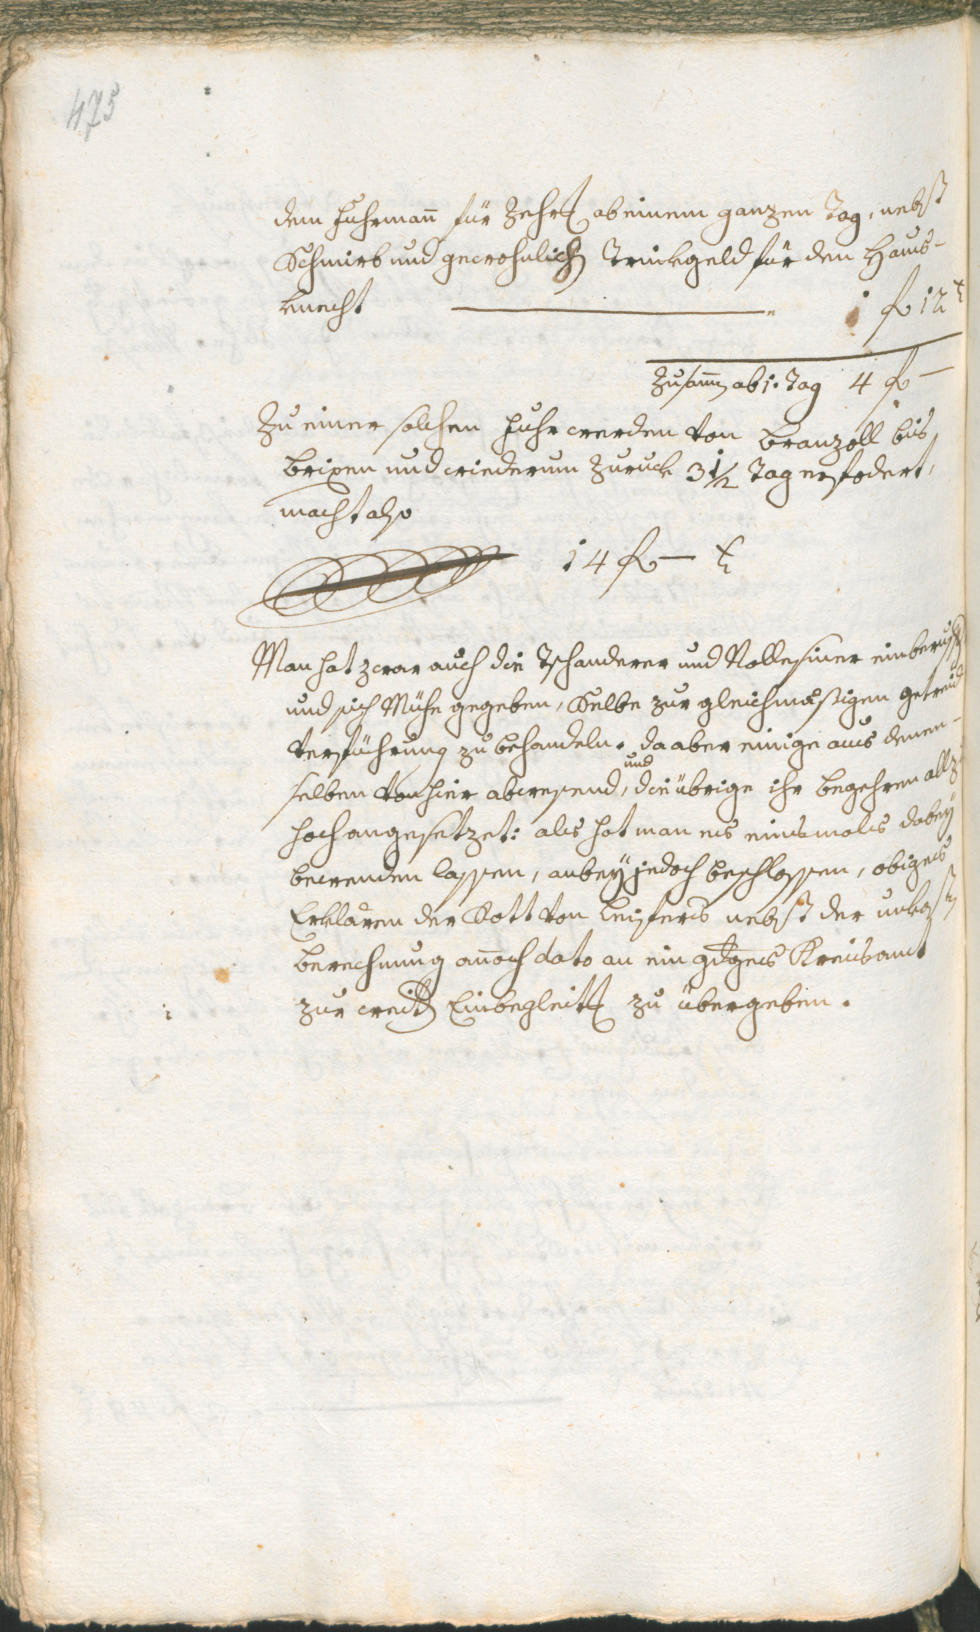 475
dem Fuhrmann für Zehrg ab einem ganzen Tag, nebst
Schmirb und gewohnlich Trinkgeld für den Haus-
knecht ———— 1 f 12 x
Zusamm ab 1. Tag 4 f —
Zu einer solchen Fuhr werden von Branzoll bis
Brixen und wiederum zuruck 3 1/2 Tag erfodert,
macht also
14 f — x
Man hat zwar auch die Tschanderer und Rollesiner einberuffen
und sich Mühe gegeben, Selbe zur gleichmäßigen getreid
Verführung zu behandeln. da aber einige aus denen-
selben von hier abwesend, und die übrige ihr begehren allzu
hoch angesetzet: als hat man es einsmals dabey
bewenden lassen, anbey jedoch beschlossen, obiges
Erklären der Rott von Leifers nebst der unkosten
berechnung annoch dato an ein Kreisamt
zur weit Einbegleitg zu übergeben.